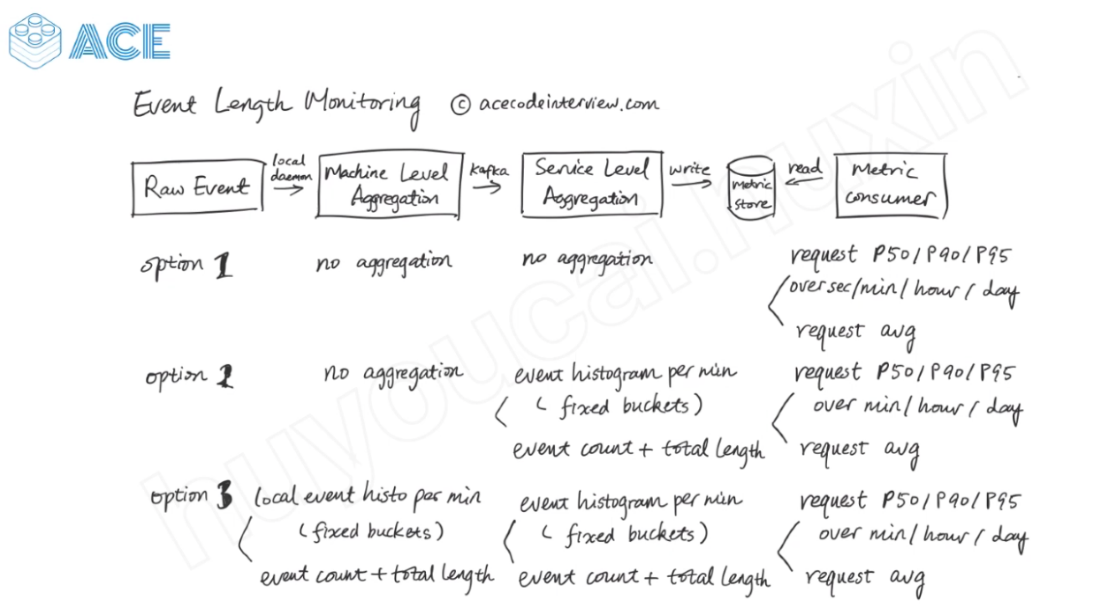 ACE
Event Length Monitoring © acecodeinterview.com
Raw Event
local
daemon
Machine Level
Aggregation
kafka
Service Level
Aggregation
write
Metric
store
read
Metric
consumer
option 1
no aggregation
no aggregation
request P50/P90/P95
over sec/min/hour/day
request avg
option 2
no aggregation
event histogram per min
(fixed buckets)
event count + total length
request P50/P90/P95
over min/hour/day
request avg
option 3
local event histo per min
(fixed buckets)
event count + total length
event histogram per min
(fixed buckets)
event count + total length
request P50/P90/P95
over min/hour/day
request avg
huyoucai.nuxin